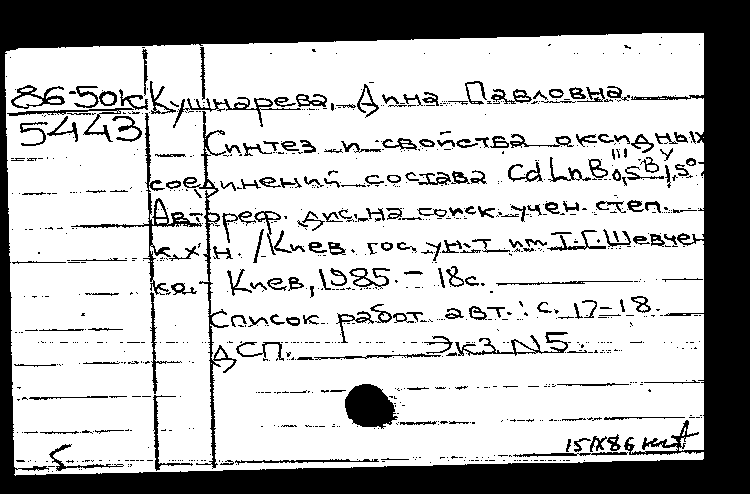 86-50к Кушнарева, Дина Павловна.
5443
Синтез и свойства оксидных
соединений состава CdLnB
Автореф. дис. на соиск. учен. степ.
к.х.н. /Киев. гос. ун-т им. Т.Г.Шевчен
ко. - Киев, 1985. - 18с.
Список работ авт.: с. 17-18.
ДСП. Экз N5.
5
15 IX 86